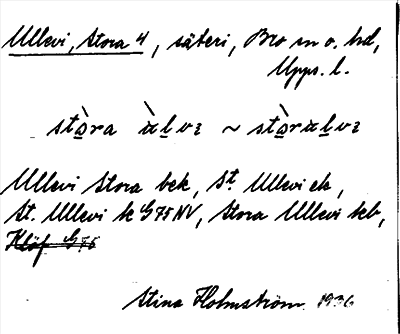 Ullevi, Stora 4, säteri, Bro sn o. hd,
Upps. l.
stò̱ra ùḻvɩ ~ stò̱rùḻvɩ
Ullevi Stora bek, St. Ullevi ek,
St. Ullevi k G 75 NV, Stora Ullevi kb,
Klöf G 75
Stina Holmström 1936